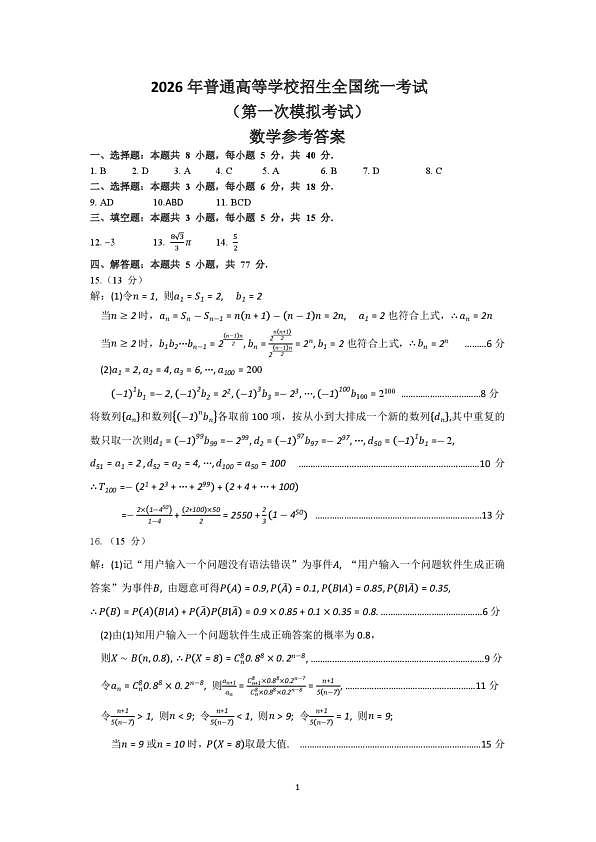 2026 年普通高等学校招生全国统一考试
（第一次模拟考试）
数学参考答案
一、选择题：本题共 8 小题，每小题 5 分，共 40 分．
1. B 2. D 3. A 4. C 5. A 6. B 7. D 8. C
二、选择题：本题共 3 小题，每小题 6 分，共 18 分．
9. AD 10.ABD 11. BCD
三、填空题：本题共 3 小题，每小题 5 分，共 15 分．
12. −3 13. 8√3/3 π 14. 5/2
四、解答题：本题共 5 小题，共 77 分．
15.（13 分）
解：(1)令n = 1, 则a₁ = S₁ = 2, b₁ = 2
当n ≥ 2 时，aₙ = Sₙ − Sₙ₋₁ = n(n + 1) − (n − 1)n = 2n, a₁ = 2 也符合上式，∴ aₙ = 2n
当n ≥ 2 时，b₁b₂⋯bₙ₋₁ = 2^((n−1)n/2), bₙ = 2^(n(n+1)/2)/2^((n−1)n/2) = 2ⁿ, b₁ = 2 也符合上式，∴ bₙ = 2ⁿ ………6 分
(2)a₁ = 2, a₂ = 4, a₃ = 6, ⋯, a₁₀₀ = 200
(−1)¹b₁ =− 2, (−1)²b₂ = 2², (−1)³b₃ =− 2³, ⋯, (−1)¹⁰⁰b₁₀₀ = 2¹⁰⁰ …………………………8 分
将数列{aₙ}和数列{(−1)ⁿbₙ}各取前 100 项，按从小到大排成一个新的数列{dₙ},其中重复的
数只取一次则d₁ = (−1)⁹⁹b₉₉ =− 2⁹⁹, d₂ = (−1)⁹⁷b₉₇ =− 2⁹⁷, ⋯, d₅₀ = (−1)¹b₁ =− 2,
d₅₁ = a₁ = 2 , d₅₂ = a₂ = 4, ⋯, d₁₀₀ = a₅₀ = 100 ……………………………………………………10 分
∴ T₁₀₀ =− (2¹ + 2³ + ⋯ + 2⁹⁹) + (2 + 4 + ⋯ + 100)
=− 2×(1−4⁵⁰)/(1−4) + (2+100)×50/2 = 2550 + 2/3 (1 − 4⁵⁰) ………………………………………………13 分
16. （15 分）
解：(1)记“用户输入一个问题没有语法错误”为事件A, “用户输入一个问题软件生成正确
答案”为事件B, 由题意可得P(A) = 0.9, P(Ā) = 0.1, P(B|A) = 0.85, P(B|Ā) = 0.35,
∴ P(B) = P(A)(B|A) + P(Ā)P(B|Ā) = 0.9 × 0.85 + 0.1 × 0.35 = 0.8. …………………………………6 分
(2)由(1)知用户输入一个问题软件生成正确答案的概率为 0.8,
则X ~ B(n, 0.8), ∴ P(X = 8) = Cₙ⁸0. 8⁸ × 0. 2ⁿ⁻⁸, …………………………………………………9 分
令aₙ = Cₙ⁸0. 8⁸ × 0. 2ⁿ⁻⁸, 则aₙ₊₁/aₙ = Cₙ₊₁⁸×0.8⁸×0.2ⁿ⁻⁷/Cₙ⁸×0.8⁸×0.2ⁿ⁻⁸ = (n+1)/5(n−7), …………………………………………11 分
令(n+1)/5(n−7) > 1, 则n < 9; 令(n+1)/5(n−7) < 1, 则n > 9; 令(n+1)/5(n−7) = 1, 则n = 9;
当n = 9 或n = 10 时, P(X = 8)取最大值. ……………………………………………………15 分
1